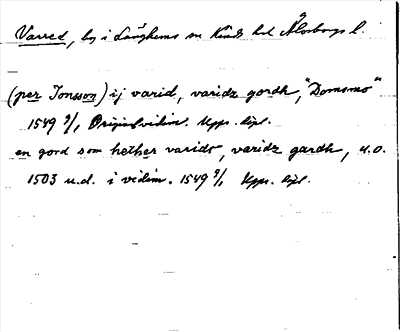 Varred, by i Länghems sn Kinds hd Älvsborgs l.
(per Jonsson) ij varid, varidz gordh, "Domsmo"
1549 9/1 Originalvidim. Upps.ligl.
en gord som hether varidt, varidz gardh, u.o.
1503 u.d. i vidim. 1549 9/1 Upps. ligl.